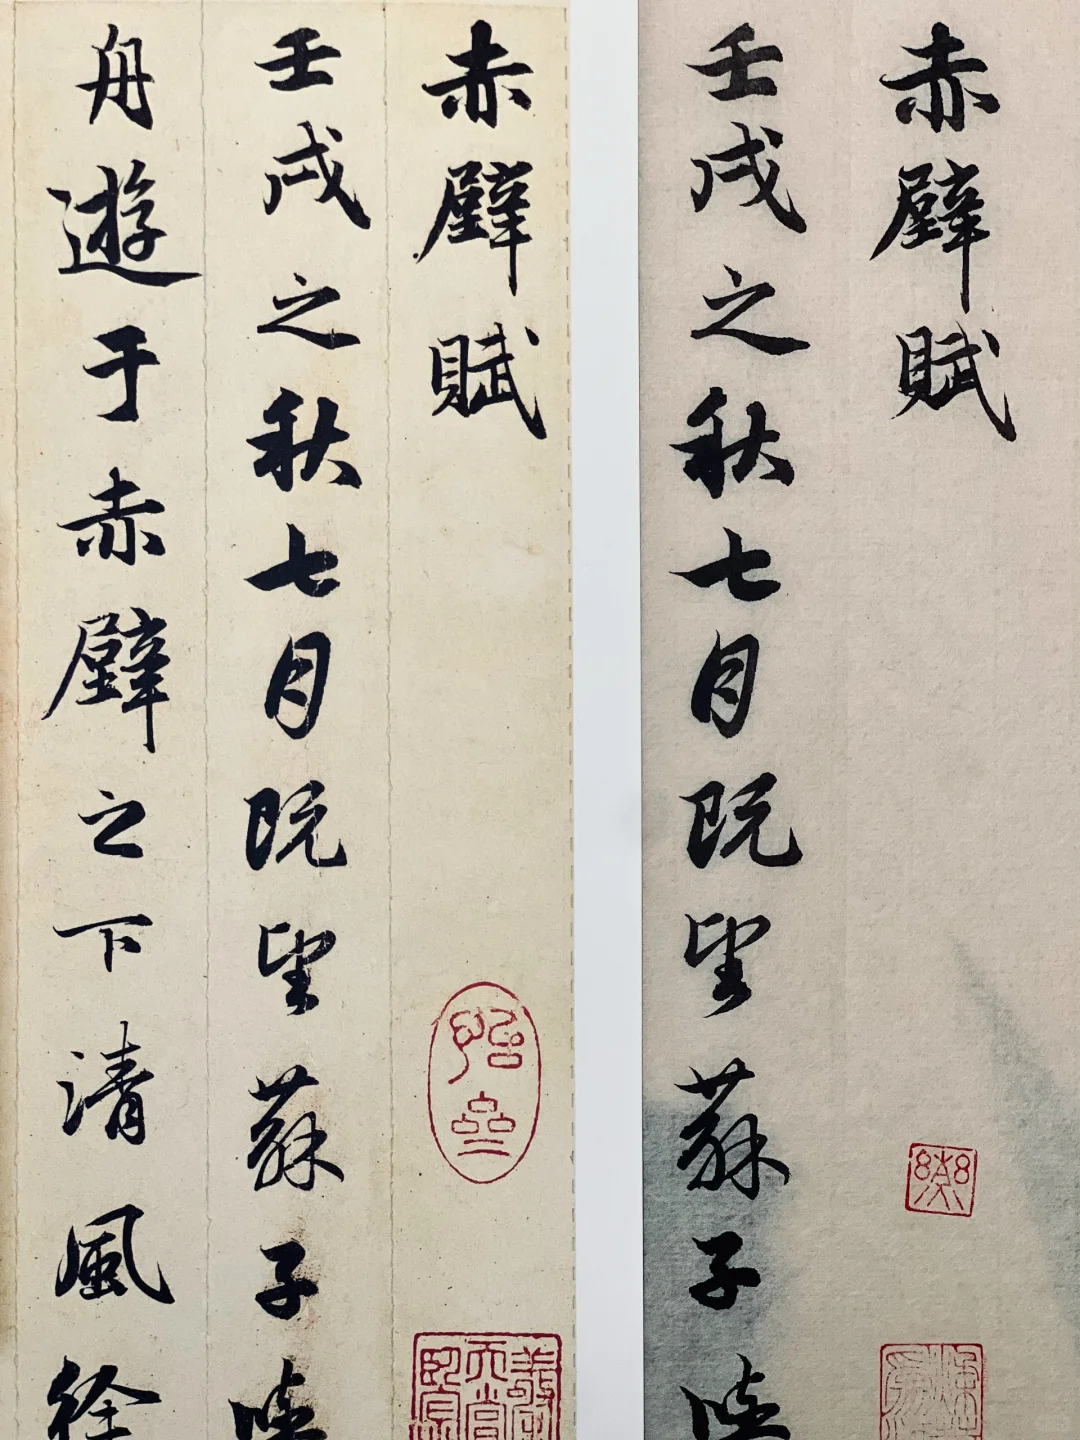 赤壁賦
壬戌之秋七月既望蘇子
赤壁賦
壬戌之秋七月既望蘇子
舟遊于赤壁之下清風徐